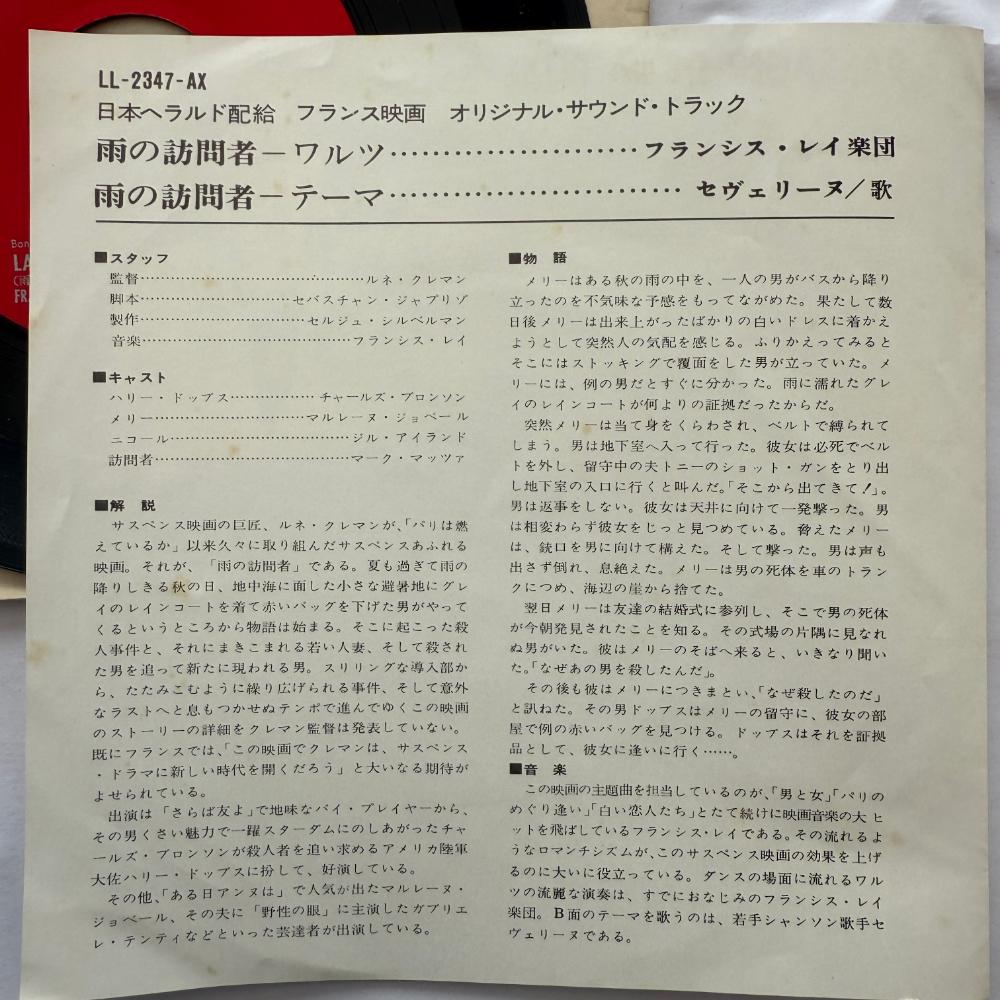 LL-2347-AX
日本ヘラルド配給　フランス映画　オリジナル・サウンド・トラック
雨の訪問者－ワルツ……………………フランシス・レイ楽団
雨の訪問者－テーマ……………………セヴェリーヌ／歌
■スタッフ
監督……………………ルネ・クレマン
脚本……………………セバスチャン・ジャプリゾ
製作……………………セルジュ・シルベルマン
音楽……………………フランシス・レイ
■キャスト
ハリー・ドップス……………チャールズ・ブロンソン
メリー……………………マルレーヌ・ジョベール
ニコール……………………ジル・アイランド
訪問者……………………マーク・マッツァ
■解　説
サスペンス映画の巨匠、ルネ・クレマンが、「パリは燃
えているか」以来久々に取り組んだサスペンスあふれる
映画。それが、「雨の訪問者」である。夏も過ぎて雨の
降りしきる秋の日、地中海に面した小さな避暑地にグレ
イのレインコートを着て赤いバッグを下げた男がやって
くるというところから物語は始まる。そこに起こった殺
人事件と、それにまきこまれる若い人妻、そして殺され
た男を追って新たに現われる男。スリリングな導入部か
ら、たたみこむように繰り広げられる事件、そして意外
なラストへと息もつかせぬテンポで進んでゆくこの映画
のストーリーの詳細をクレマン監督は発表していない。
既にフランスでは、「この映画でクレマンは、サスペンス
・ドラマに新しい時代を開くだろう」と大いなる期待が
よせられている。
出演は「さらば友よ」で地味なバイ・プレイヤーから、
その男くさい魅力で一躍スターダムにのしあがったチャ
ールズ・ブロンソンが殺人者を追い求めるアメリカ陸軍
大佐ハリー・ドップスに扮して、好演している。
その他、「ある日アンヌは」で人気が出たマルレーヌ・
ジョベール、その夫に「野性の眼」に主演したガブリエ
レ・テンティなどといった芸達者が出演している。
■物　語
メリーはある秋の雨の中を、一人の男がバスから降り
立ったのを不気味な予感をもってながめた。果たして数
日後メリーは出来上がったばかりの白いドレスに着かえ
ようとして突然人の気配を感じる。ふりかえってみると
そこにはストッキングで覆面をした男が立っていた。メ
リーには、例の男だとすぐに分かった。雨に濡れたグレ
イのレインコートが何よりの証拠だったからだ。
突然メリーは当て身をくらわされ、ベルトで縛られて
しまう。男は地下室へ入って行った。彼女は必死でベル
トを外し、留守中の夫トニーのショット・ガンをとり出
し地下室の入口に行くと叫んだ。「そこから出てきて！」。
男は返事をしない。彼女は天井に向けて一発撃った。男
は相変わらず彼女をじっと見つめている。脅えたメリー
は、銃口を男に向けて構えた。そして撃った。男は声も
出さず倒れ、息絶えた。メリーは男の死体を車のトラン
クにつめ、海辺の崖から捨てた。
翌日メリーは友達の結婚式に参列し、そこで男の死体
が今朝発見されたことを知る。その式場の片隅に見なれ
ぬ男がいた。彼はメリーのそばへ来ると、いきなり聞い
た。「なぜあの男を殺したんだ」。
その後も彼はメリーにつきまとい、「なぜ殺したのだ」
と訊ねた。その男ドップスはメリーの留守に、彼女の部
屋で例の赤いバッグを見つける。ドップスはそれを証拠
品として、彼女に逢いに行く……。
■音　楽
この映画の主題曲を担当しているのが、「男と女」「パリの
めぐり逢い」「白い恋人たち」とたて続けに映画音楽の大ヒ
ットを飛ばしているフランシス・レイである。その流れるよ
うなロマンチシズムが、このサスペンス映画の効果を上げ
るのに大いに役立っている。ダンスの場面に流れるワル
ツの流麗な演奏は、すでにおなじみのフランシス・レイ
楽団。B面のテーマを歌うのは、若手シャンソン歌手セ
ヴェリーヌである。